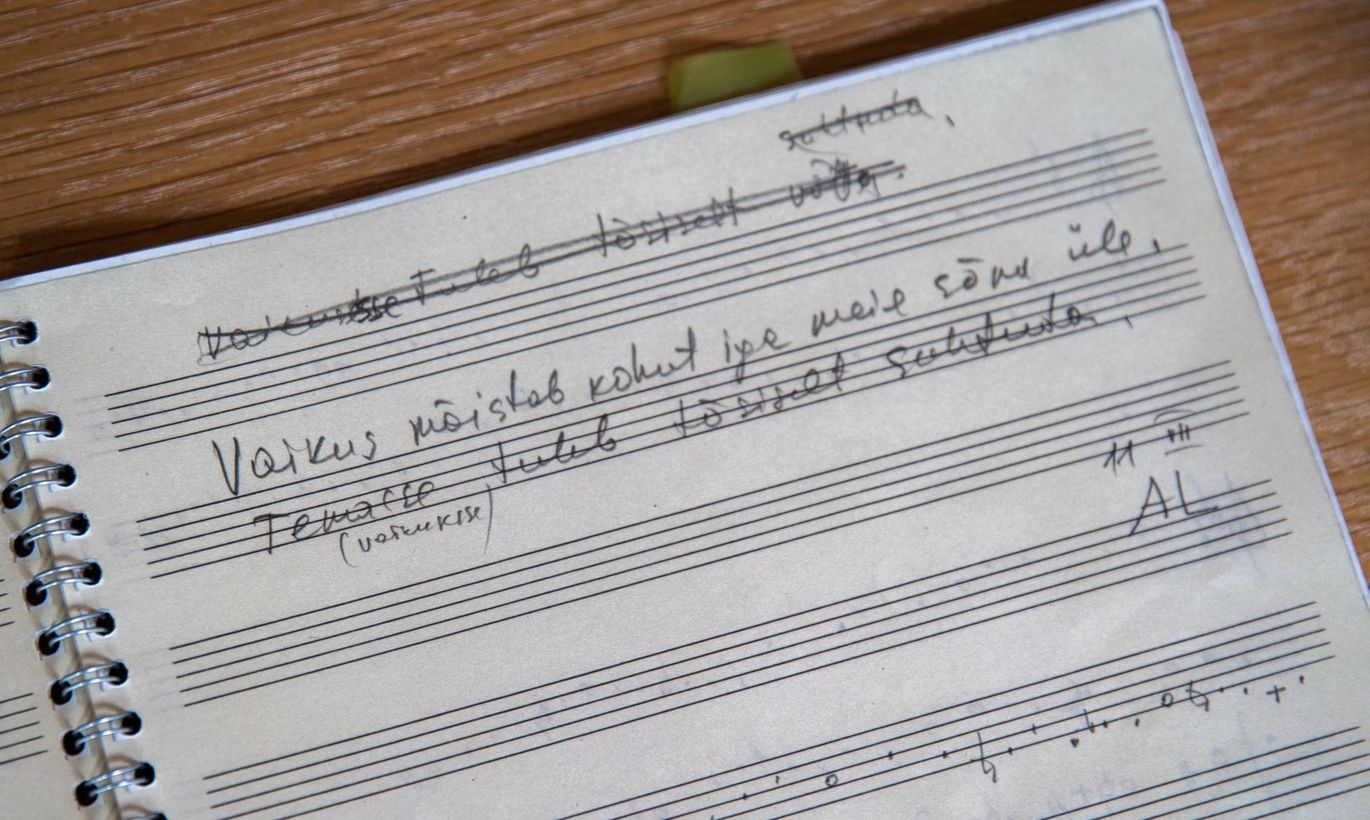 suhtuda,
Vaikusesse tuleb tõsiselt võtta.
Vaikus mõistab kohut iga meie sõna üle,
Temasse tuleb tõsiselt suhtuda,
(vaikusse)
11 III
AL